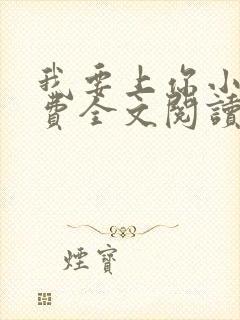 我要上你小
費全文閱讀
煙寶